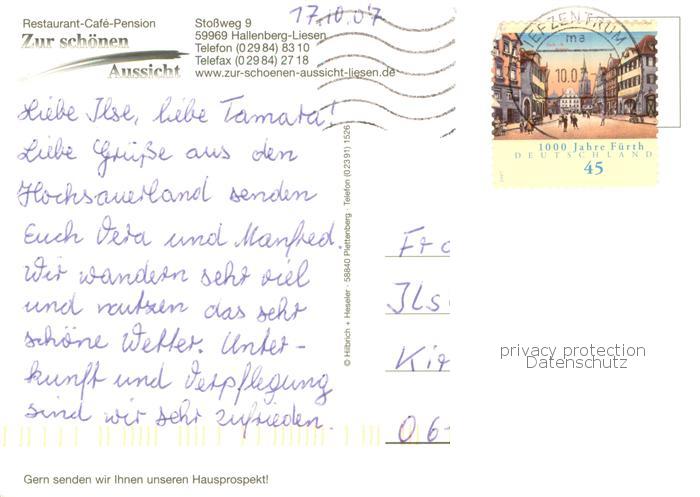 17.10.07
Restaurant-Café-Pension
Zur schönen
Aussicht
Stoßweg 9
59969 Hallenberg-Liesen
Telefon (0 29 84) 83 10
Telefax (0 29 84) 27 18
www.zur-schoenen-aussicht-liesen.de
Liebe Ilse, liebe Tamara!
Liebe Grüße aus den
Hochsauerland senden
Euch Vera und Manfred.
Wir wandern sehr viel
und nutzen das sehr
schöne Wetter. Unter-
kunft und Verpflegung
sind wir sehr zufrieden.
Gern senden wir Ihnen unseren Hausprospekt!
© Hilbrich + Heseler · 58840 Plettenberg · Telefon (0 23 91) 1526
EFZENTRUM
ma
10.0
1000 Jahre Fürth
DEUTSCHLAND
45
Fra
Ils
Kir
06
privacy protection
Datenschutz